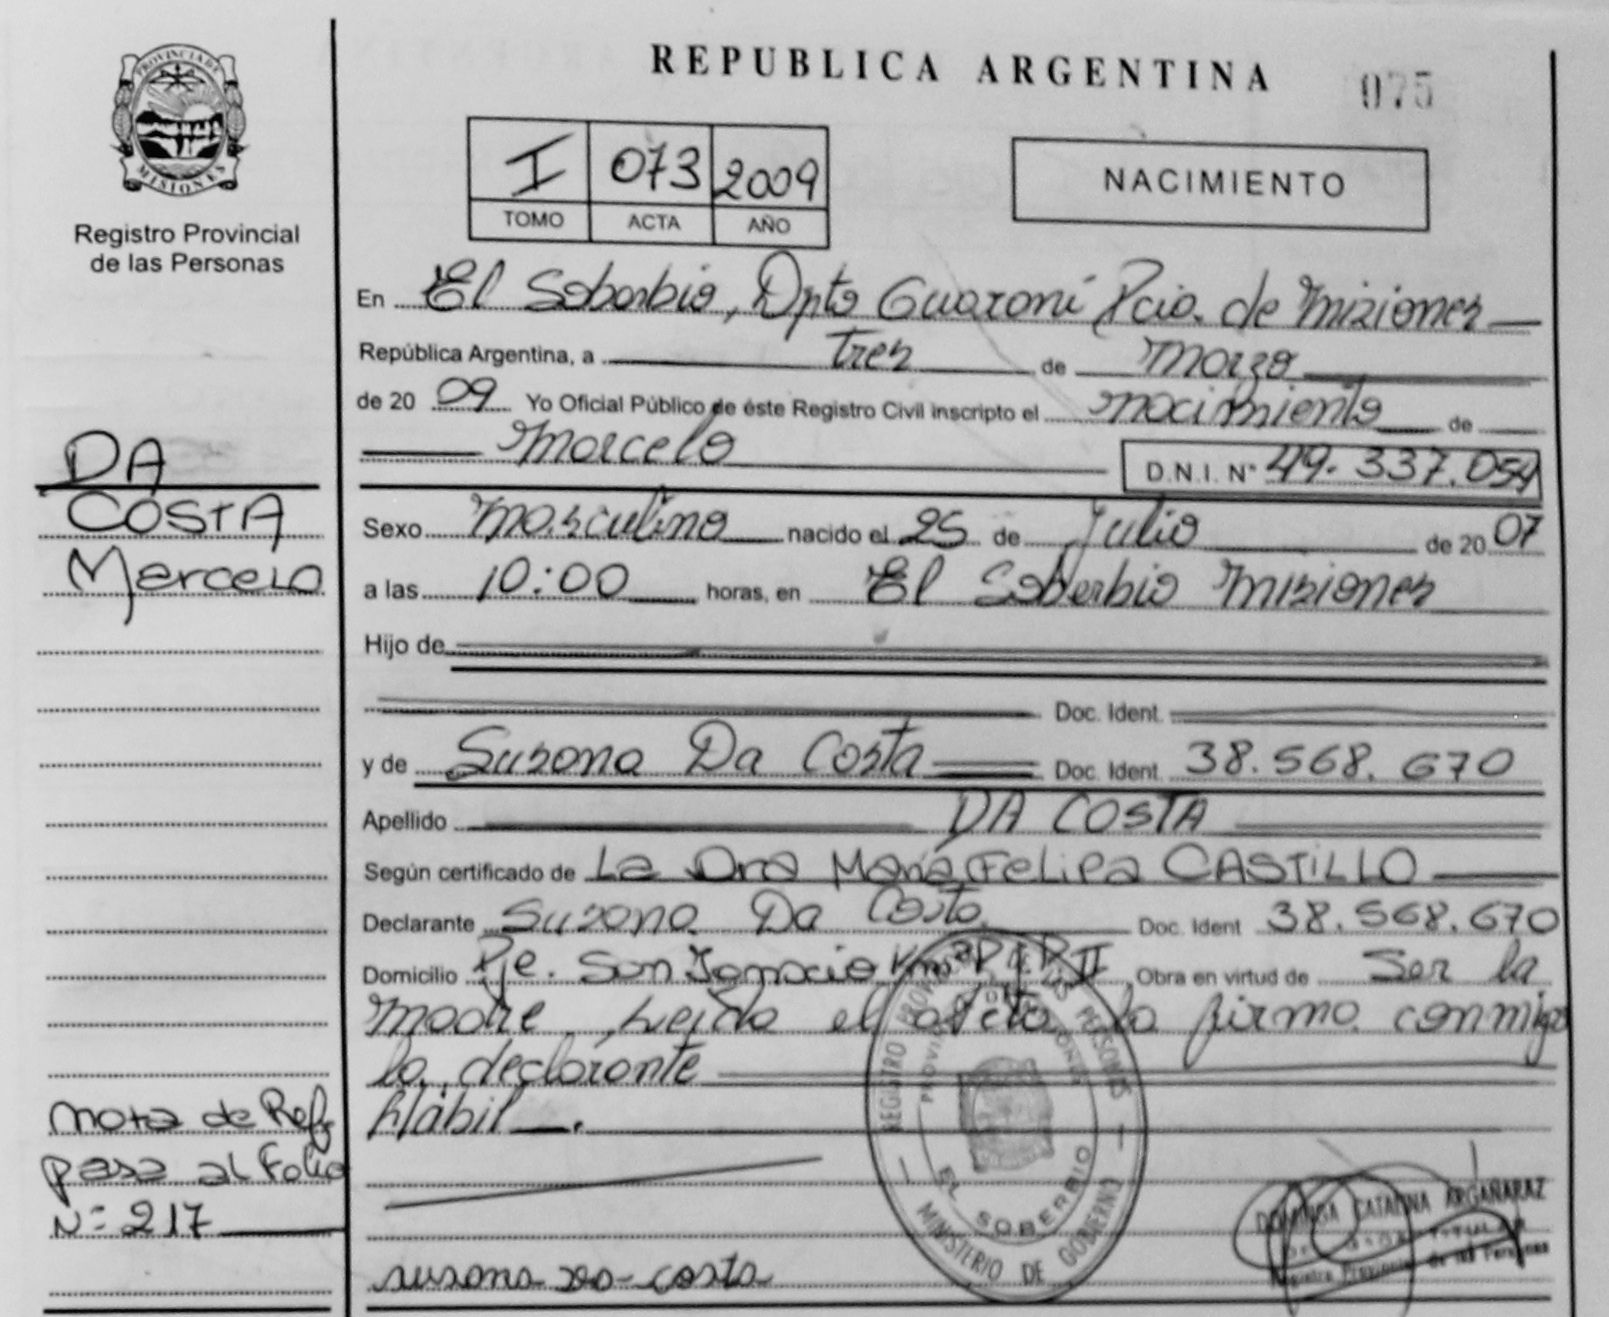 PROVINCIA DE
MISIONES
Registro Provincial
de las Personas
REPUBLICA ARGENTINA
075
I 073 2009
TOMO ACTA AÑO
NACIMIENTO
En El Soberbio, Dpto Guaraní Pcia. de Misiones
República Argentina, a tres de Marzo
de 20 09 Yo Oficial Público de éste Registro Civil inscripto el nacimiento de
Marcelo
D.N.I. Nº 49.337.054
DA
COSTA
Marcelo
Sexo Masculino nacido el 25 de Julio de 20 07
a las 10:00 horas, en El Soberbio Misiones
Hijo de
Doc. Ident.
y de Susana Da Costa Doc. Ident. 38.568.670
Apellido DA COSTA
Según certificado de La Dra María Felipa CASTILLO
Declarante Susana Da Costa Doc. Ident 38.568.670
Domicilio Pje. San Ignacio Obra en virtud de Ser la
madre, Leída el acta la firma conmigo
la declarante
Hábil.
Nota de Ref.
pasa al Folio
Nº 217
REGISTRO PROVINCIAL DE LAS PERSONAS
PROVINCIA DE MISIONES
EL SOBERBIO
MINISTERIO DE GOBIERNO
susana da costa
DOMINGA CATALINA ARGAÑARAZ
Registro Provincial de las Personas